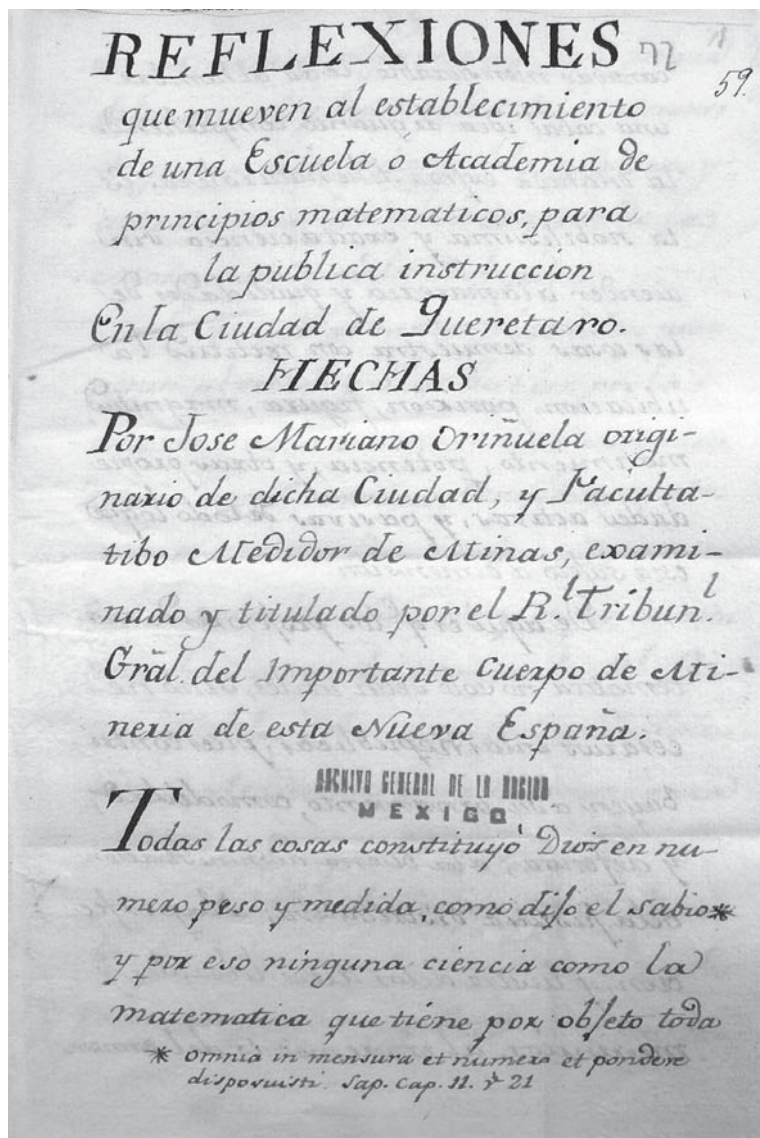 REFLEXIONES
59.
que mueven al establecimiento
de una Escuela ó Academia de
principios matematicos, para
la publica instruccion
En la Ciudad de Queretaro.
HECHAS
Por Jose Mariano Oriñuela origi-
nario de dicha Ciudad, y Faculta-
tibo Medidor de Minas, exami-
nado y titulado por el R.l Tribun.l
Grãl. del Importante Cuerpo de Mi-
neria de esta Nueva España.
ARCHIVO GENERAL DE LA NACION
MEXICO
Todas las cosas constituyó Dios en nu-
mero peso y medida, como dijo el sabio*
y por eso ninguna ciencia como la
matematica que tiéne por objeto toda
* omnia in mensura et numero et pondere
disposuisti. Sap. Cap. 11. ℣ 21